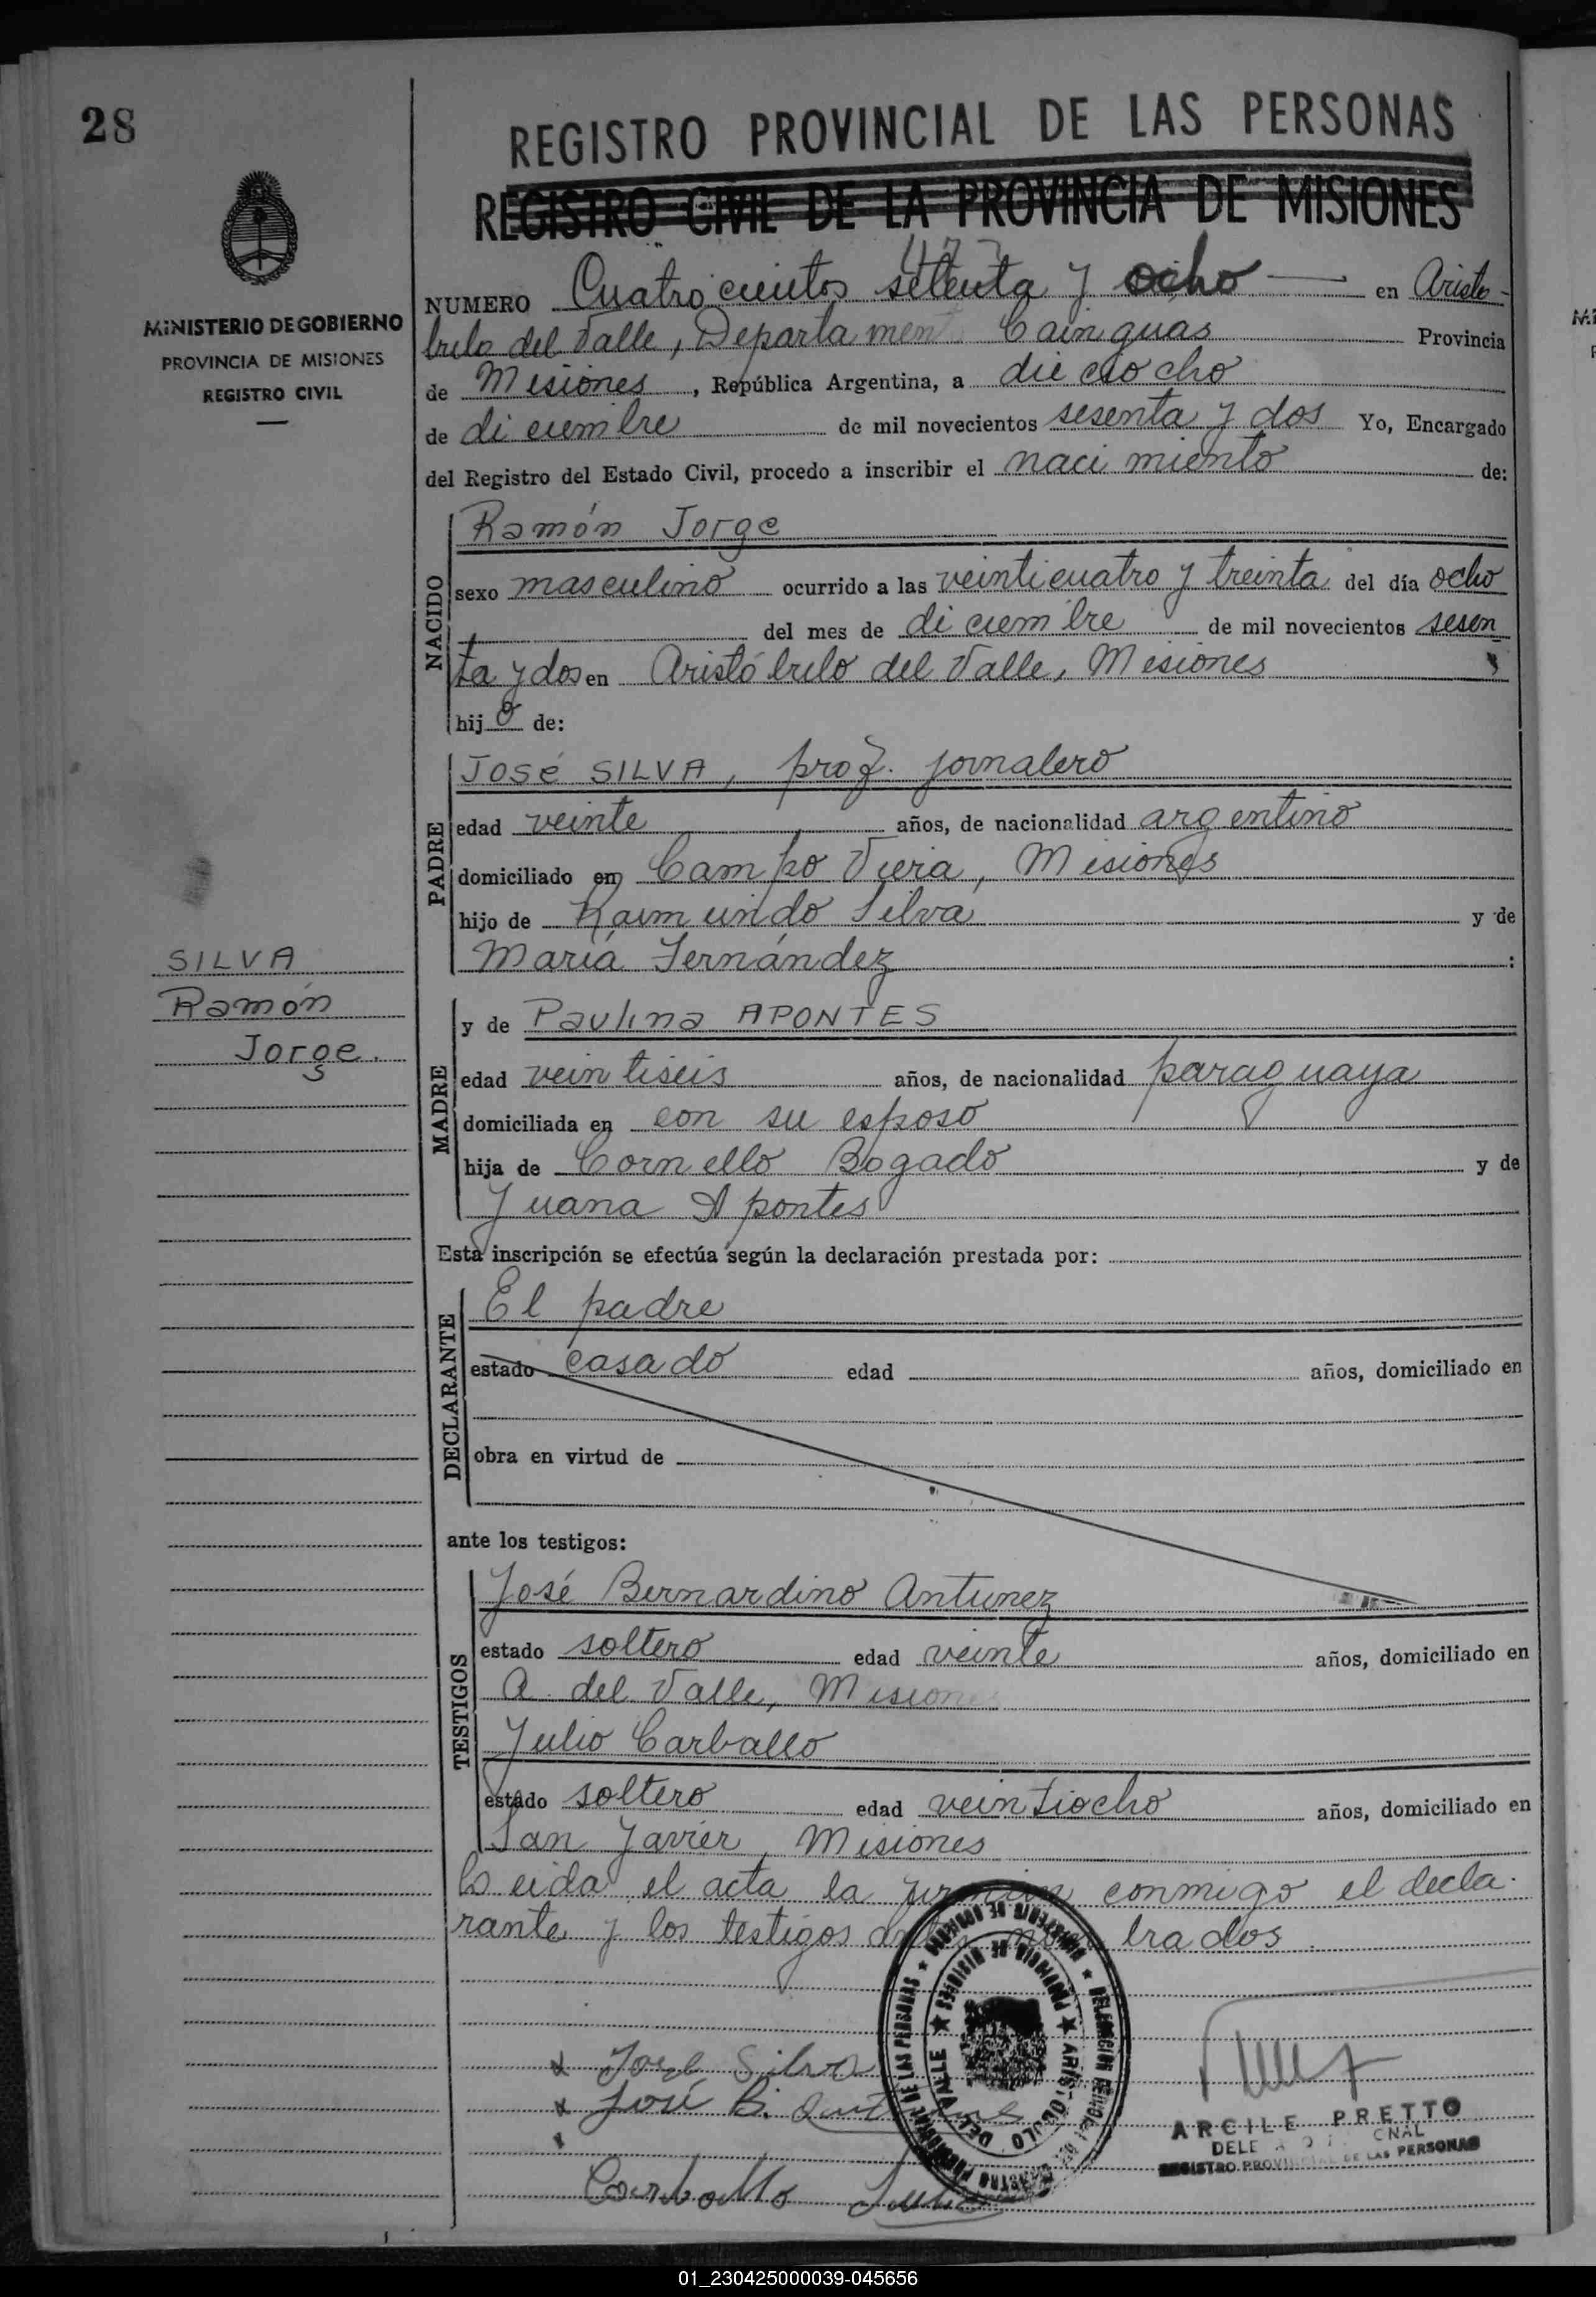 28
REGISTRO PROVINCIAL DE LAS PERSONAS
REGISTRO CIVIL DE LA PROVINCIA DE MISIONES
MINISTERIO DE GOBIERNO
PROVINCIA DE MISIONES
REGISTRO CIVIL
477
NUMERO Cuatrocientos setenta y ocho en Aristo-
bulo del Valle, Departament Cainguas Provincia
de Misiones, República Argentina, a dieciocho
de diciembre de mil novecientos sesenta y dos Yo, Encargado
del Registro del Estado Civil, procedo a inscribir el nacimiento de:
NACIDO
Ramón Jorge
sexo masculino ocurrido a las veinticuatro y treinta del día ocho
del mes de diciembre de mil novecientos sesen
ta y dos en Aristóbulo del Valle, Misiones
hijo de:
PADRE
JOSÉ SILVA, prof. jornalero
edad veinte años, de nacionalidad argentino
domiciliado en Campo Viera, Misiones
hijo de Raimundo Silva y de
María Fernández :
SILVA
Ramón
Jorge.
MADRE
y de Paulina APONTES
edad veintiseis años, de nacionalidad paraguaya
domiciliada en con su esposo
hija de Cornello Bogado y de
Juana Apontes
Esta inscripción se efectúa según la declaración prestada por:
DECLARANTE
El padre
estado casado edad años, domiciliado en
obra en virtud de
ante los testigos:
TESTIGOS
José Bernardino Antunez
estado soltero edad veinte años, domiciliado en
A. del Valle, Misiones
Julio Carballo
estado soltero edad veintiocho años, domiciliado en
San Javier, Misiones
Leida el acta la firman conmigo el decla-
rante y los testigos antes nombrados
x José Silva
x José B. Antunez
x
Carballo Julio
REGISTRO PROVINCIAL DE LAS PERSONAS ★ MINISTERIO DE GOBIERNO ★
PROVINCIA DE MISIONES ★ ARISTOBULO DEL VALLE ★
ARCILE PRETTO
REGISTRO PROVINCIAL DE LAS PERSONAS
01_230425000039-045656